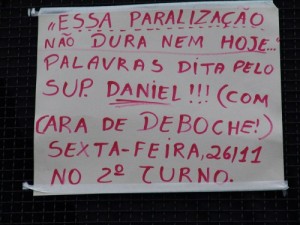 „ESSA PARALIZAÇÃO
NÃO DURA NEM HOJE..."
PALAVRAS DITA PELO
SUP. DANIEL!!! (COM
CARA DE DEBOCHE!)
SEXTA-FEIRA, 26/11
NO 2º TURNO.